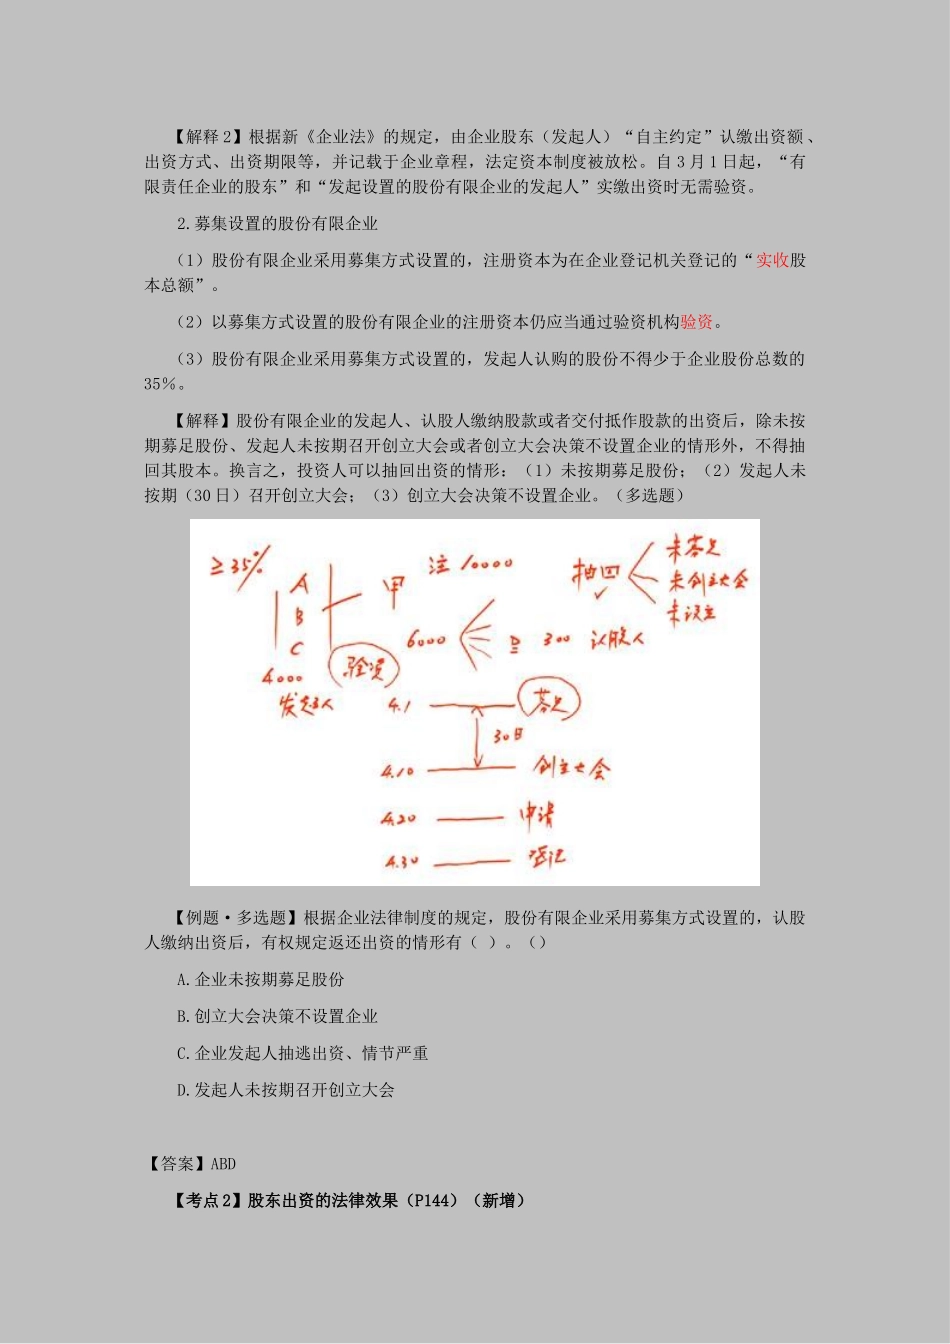 【解释 2】根据新《企业法》的规定，由企业股东（发起人）“自主约定”认缴出资额、
出资方式、出资期限等，并记载于企业章程，法定资本制度被放松。自 3 月 1 日起，“有
限责任企业的股东”和“发起设置的股份有限企业的发起人”实缴出资时无需验资。
2.募集设置的股份有限企业
（1）股份有限企业采用募集方式设置的，注册资本为在企业登记机关登记的“实收股
本总额”。
（2）以募集方式设置的股份有限企业的注册资本仍应当通过验资机构验资。
（3）股份有限企业采用募集方式设置的，发起人认购的股份不得少于企业股份总数的
35%。
【解释】股份有限企业的发起人、认股人缴纳股款或者交付抵作股款的出资后，除未按
期募足股份、发起人未按期召开创立大会或者创立大会决策不设置企业的情形外，不得抽
回其股本。换言之，投资人可以抽回出资的情形：（1）未按期募足股份；（2）发起人未
按期（30 日）召开创立大会；（3）创立大会决策不设置企业。（多选题）
≥35%
A
B
C
甲
注 10000
抽回
未募足
未创立大会
未设立
6000
300 认股人
4000
验资
发起人
4.1
募足
30日
4.10
创立大会
4.20
申请
4.30
登记
【例题·多选题】根据企业法律制度的规定，股份有限企业采用募集方式设置的，认股
人缴纳出资后，有权规定返还出资的情形有（ ）。（）
A.企业未按期募足股份
B.创立大会决策不设置企业
C.企业发起人抽逃出资、情节严重
D.发起人未按期召开创立大会
【答案】ABD
【考点 2】股东出资的法律效果（P144）（新增）